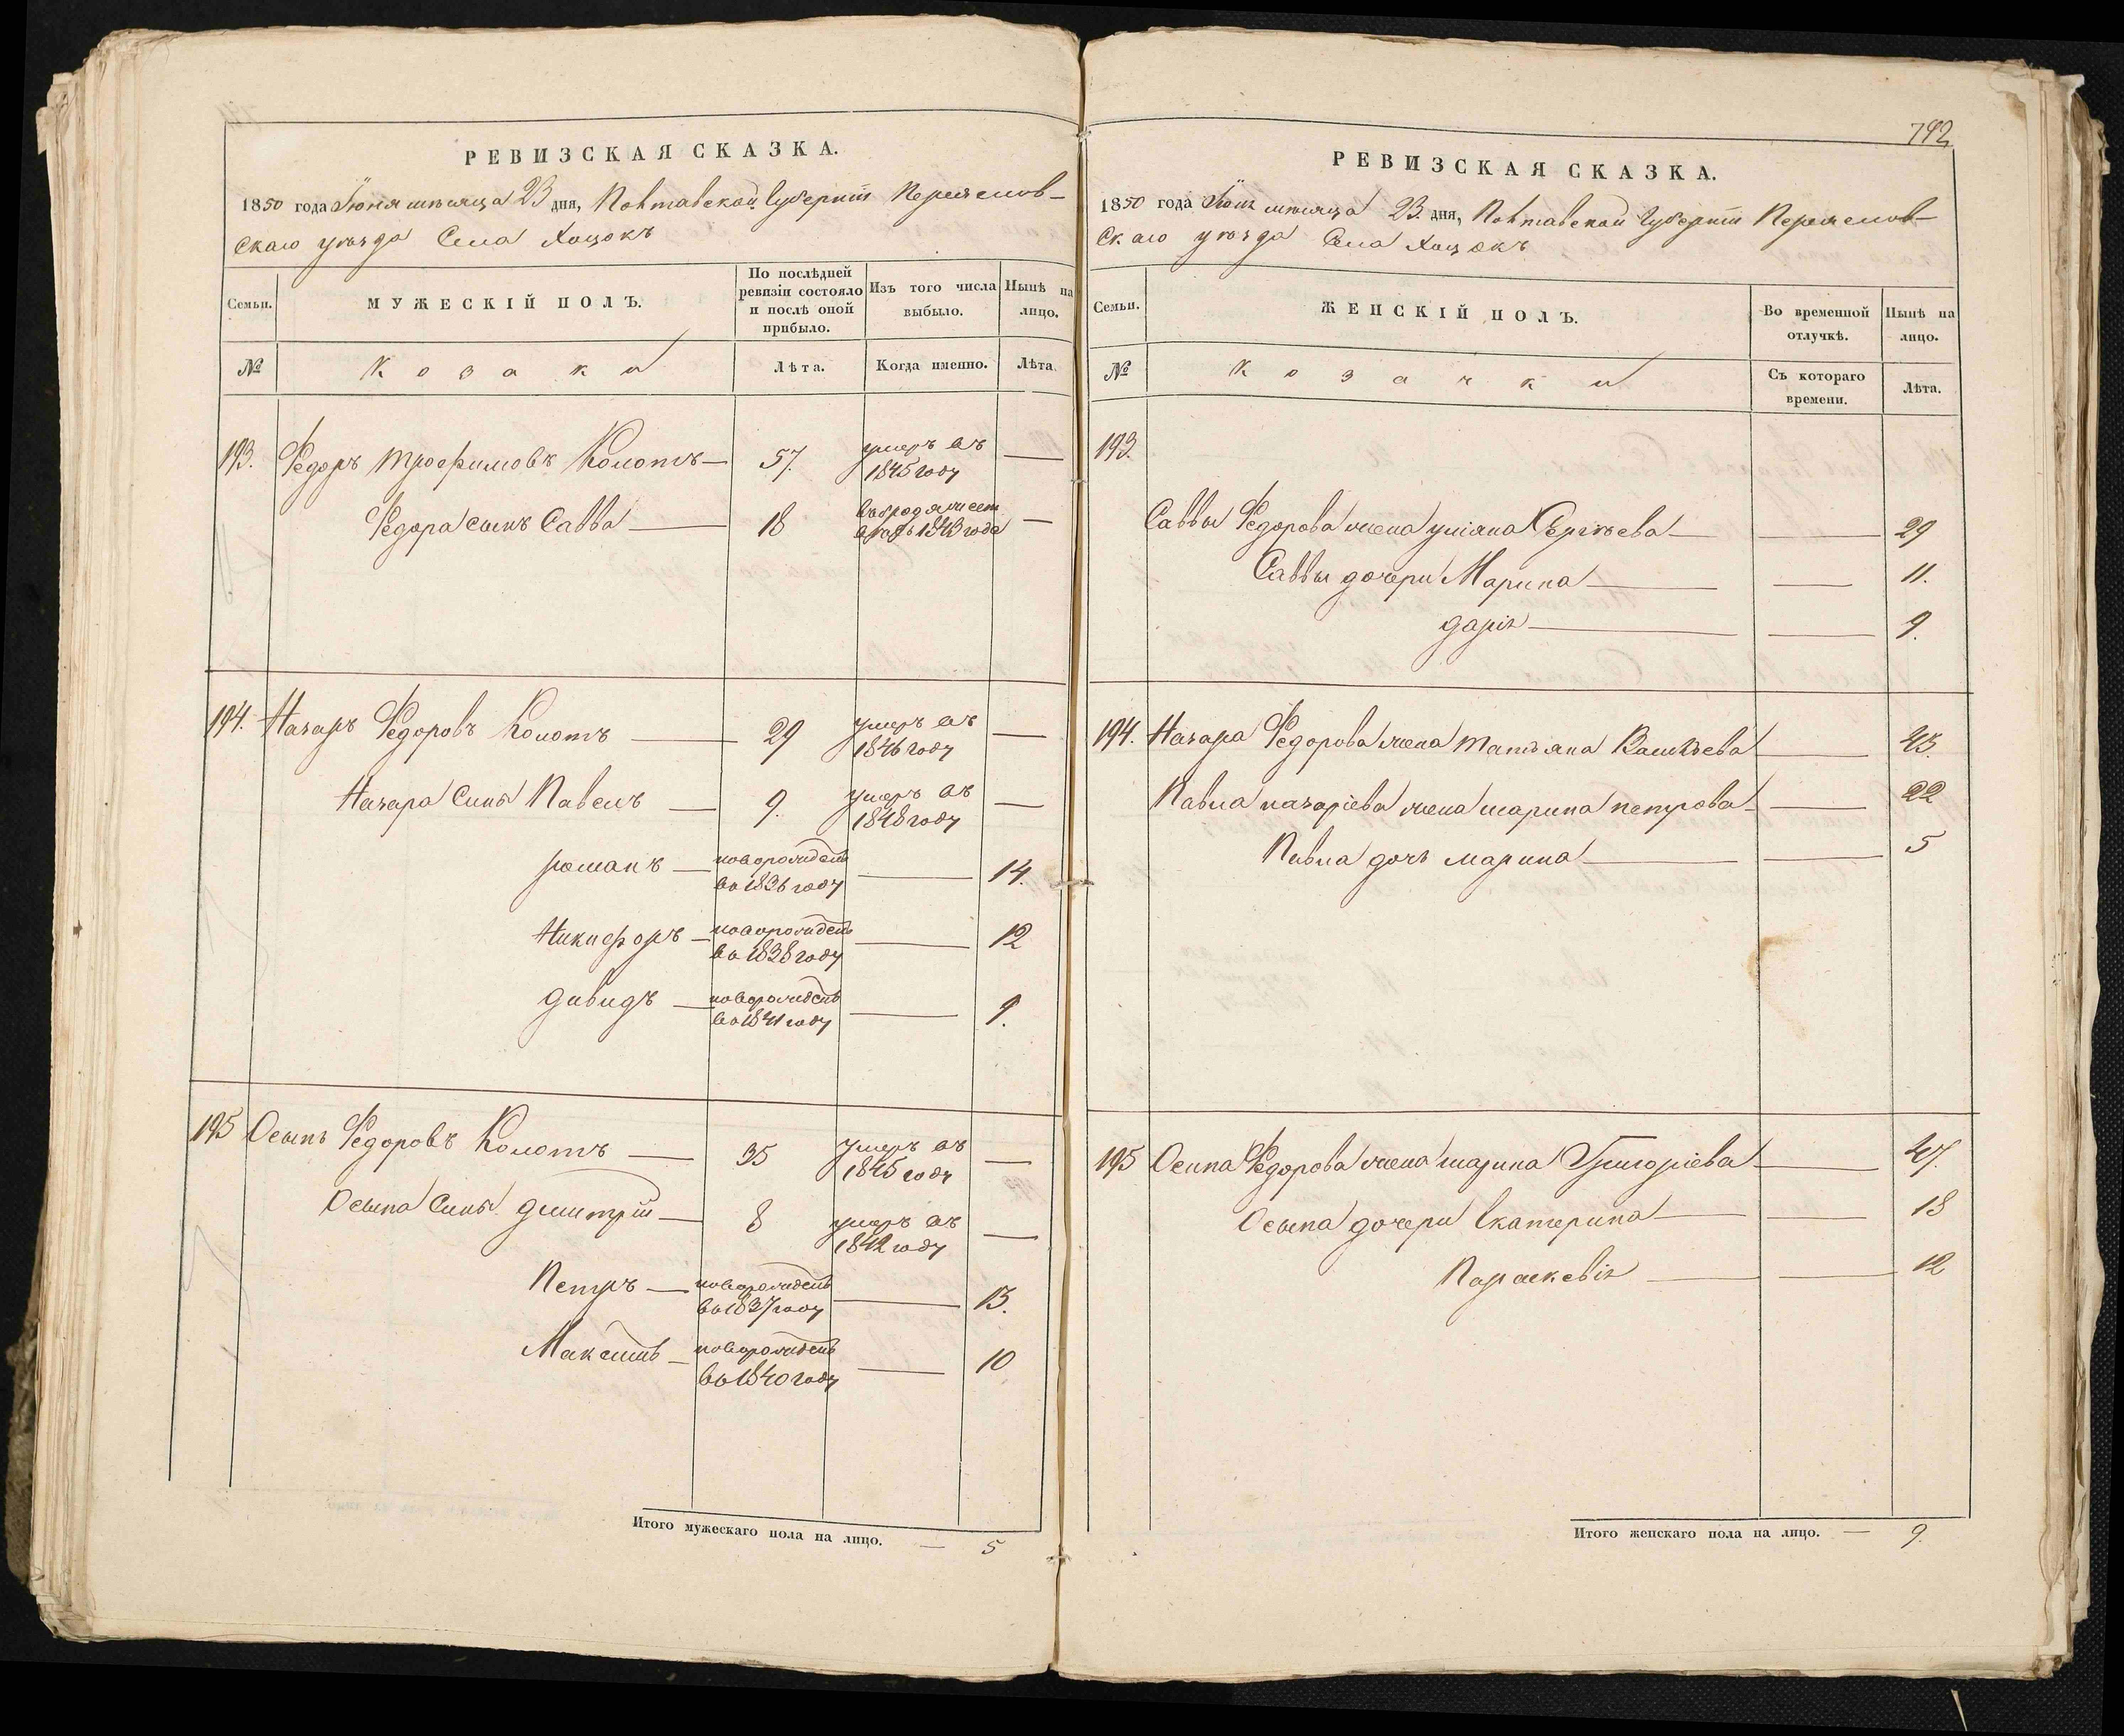 РЕВИЗСКАЯ СКАЗКА.
1850 года Июня мѣсяца 23 дня, Полтавской Губерніи Переяслов-
скаго уѣзда Села Хоцокъ
Семьи.
МУЖЕСКІЙ ПОЛЪ.
По послѣдней ревизіи состояло и послѣ оной прибыло.
Изъ того числа выбыло.
Нынѣ на лицо.
№
Козаки
Лѣта.
Когда именно.
Лѣта.
193. Федоръ Трофимовъ Коломъ — 57. умеръ въ 1845 году —
Федора сынъ Савва — 18 1843 года —
194. Назаръ Федоровъ Коломъ — 29 умеръ въ 1846 году —
Назара Сины Павелъ — 9. умеръ въ 1848 году —
романъ — новорожденъ во 1836 году — 14.
Никифоръ — новорожденъ во 1838 году — 12
давидъ — новорожденъ во 1841 году — 9.
195 Осыпъ Федоровъ Коломъ — 35 умеръ въ 1845 году —
Осыпа Сины дмитрій — 8 умеръ въ 1842 году —
Петръ — новорожденъ во 1837 году — 13.
Максимъ — новорожденъ во 1840 году — 10
Итого мужескаго пола на лицо. — 5
792
РЕВИЗСКАЯ СКАЗКА.
1850 года Июня мѣсяца 23. дня, Полтавской Губерніи Переяслов-
скаго уѣзда Села Хоцокъ
Семьи.
ЖЕНСКІЙ ПОЛЪ.
Во временной отлучкѣ.
Нынѣ на лицо.
№
Козачки
Съ котораго времени.
Лѣта.
193.
Саввы Федорова жена уліяна Сергѣева — — 29
Саввы дочери Марина — — 11.
дарія — — 9.
194. Назара Федорова жена Татьяна Васильева — 43.
Павла назаріева жена марина петрова — — 22
Павла дочь марина — — 5
195 Осипа Федорова жена марина Григоріева — 47.
Осыпа дочери Екатерина — — 18
Параскевія — — 12
Итого женскаго пола на лицо. — 9.